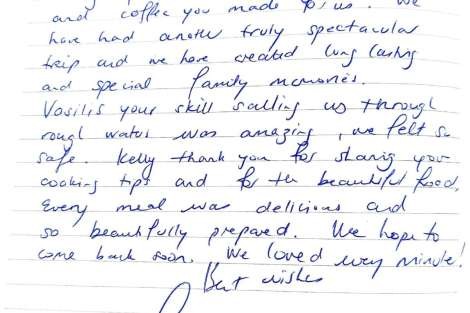 and coffee you made for us. We
have had another truly spectacular
trip and we have created long lasting
and special family memories.
Vasilis your skill sailing us through
rough waters was amazing, we felt so
safe. Kelly thank you for sharing your
cooking tips and for the beautiful food.
Every meal was delicious and
so beautifully prepared. We hope to
come back soon. We loved every minute!
Best wishes